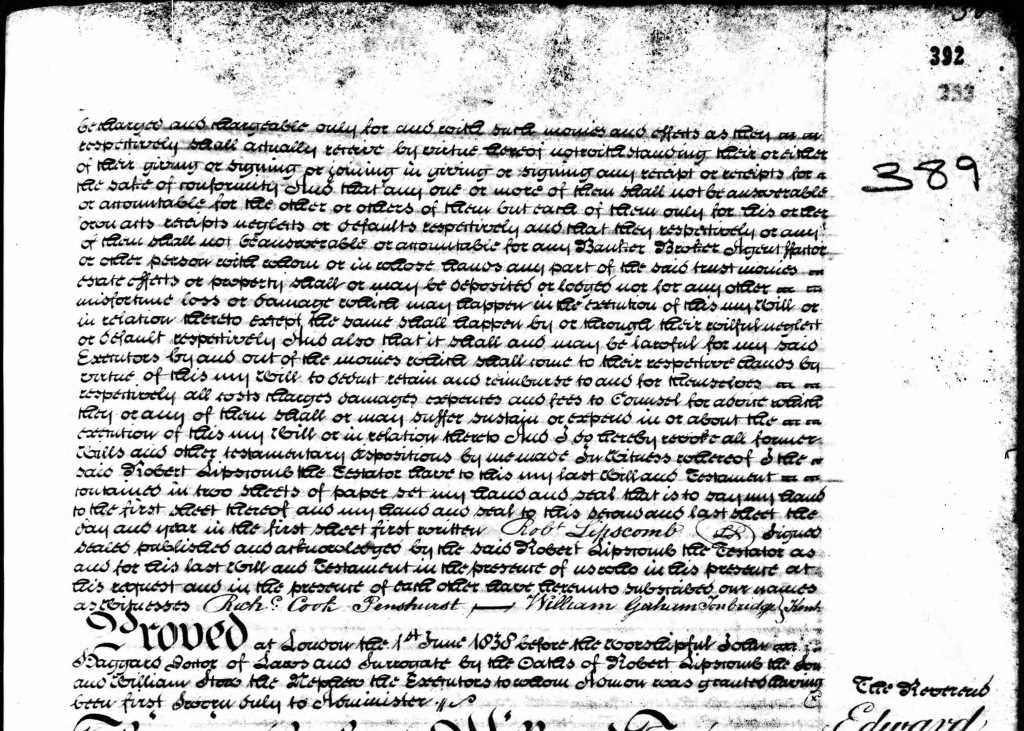 392
389
be charged and chargeable only for and with such monies and effects as they
respectively shall actually receive by virtue hereof notwithstanding their or either
of their giving or signing or joining in giving or signing any receipt or receipts for
the sake of conformity And that any one or more of them shall not be answerable
or accountable for the other or others of them but each of them only for his or their
own acts receipts neglects or defaults respectively and that they respectively or any
of them shall not be answerable or accountable for any Banker Broker Agent Factor
or other person with whom or in whose hands any part of the said trust monies
estate effects or property shall or may be deposited or lodged nor for any other
misfortune loss or damage which may happen in the execution of this my Will or
in relation thereto except the same shall happen by or through their wilful neglect
or default respectively And also that it shall and may be lawful for my said
Executors by and out of the monies which shall come to their respective hands by
virtue of this my Will to deduct retain and reimburse to and for themselves
respectively all costs charges damages expences and fees to Counsel for advice which
they or any of them shall or may suffer sustain or expend in or about the
execution of this my Will or in relation thereto And I do hereby revoke all former
Wills and other testamentary dispositions by me made In Witness whereof I the
said Robert Lipscomb the Testator have to this my last Will and Testament
contained in two sheets of paper set my hand and seal that is to say my hand
to the first sheet thereof and my hand and seal to this second and last sheet the
day and year in the first sheet first written Robt Lipscomb (LS) Signed
sealed published and acknowledged by the said Robert Lipscomb the Testator as
and for his last Will and Testament in the presence of us who in his presence at
his request and in the presence of each other have hereunto subscribed our names
as Witnesses Richd. Cook Penshurst — William Tonbridge Kent
Proved at London the 1st June 1838 before the Worshipful John
Haggard Doctor of Laws and Surrogate by the Oaths of Robert Lipscomb the Son
and William the Nephew the Executors to whom Admon was granted having
been first Sworn duly to Administer
The Reverend
Edward